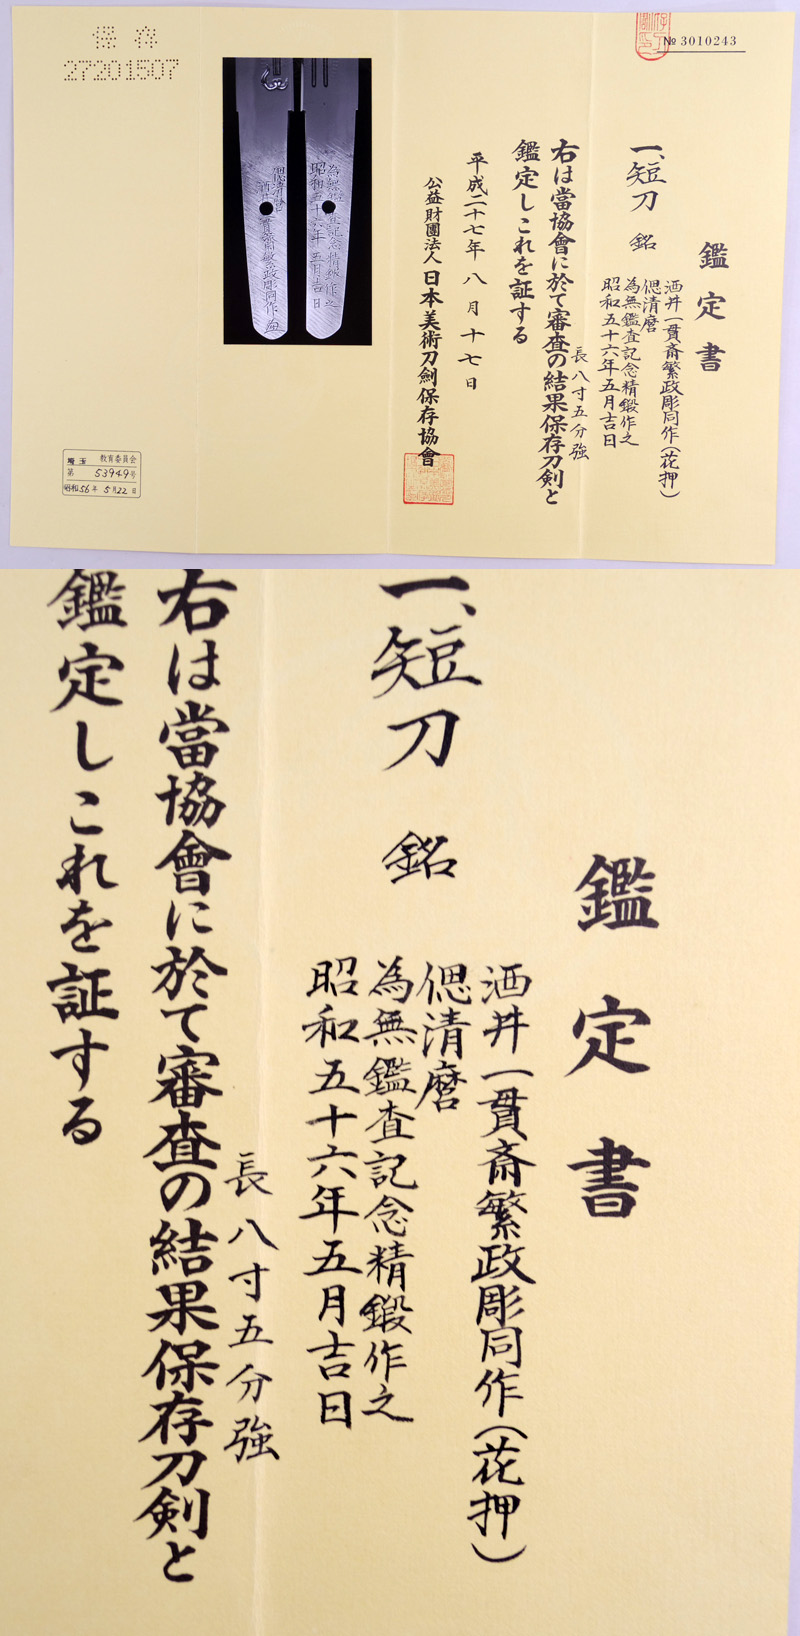 保存
27201507
№ 3010243
鑑定書
一、短刀 銘
酒井一貫斎繁政彫同作(花押)
偲清麿
為無鑑査記念精鍛作之
昭和五十六年五月吉日
長八寸五分強
右は當協會に於て審査の結果保存刀剣と
鑑定しこれを証する
平成二十七年八月十七日
公益財團法人日本美術刀劍保存協會
埼玉 教育委員会
第 53949号
昭和56年 5月22日
為無鑑査記念精鍛作之
昭和五十六年五月吉日
偲清麿
酒井一貫斎繁政彫同作
鑑定書
一、短刀 銘
酒井一貫斎繁政彫同作(花押)
偲清麿
為無鑑査記念精鍛作之
昭和五十六年五月吉日
長八寸五分強
右は當協會に於て審査の結果保存刀剣と
鑑定しこれを証する